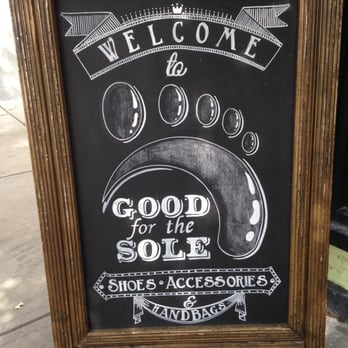 WELCOME
to
GOOD
for the
SOLE
SHOES • ACCESSORIES
&
HANDBAGS